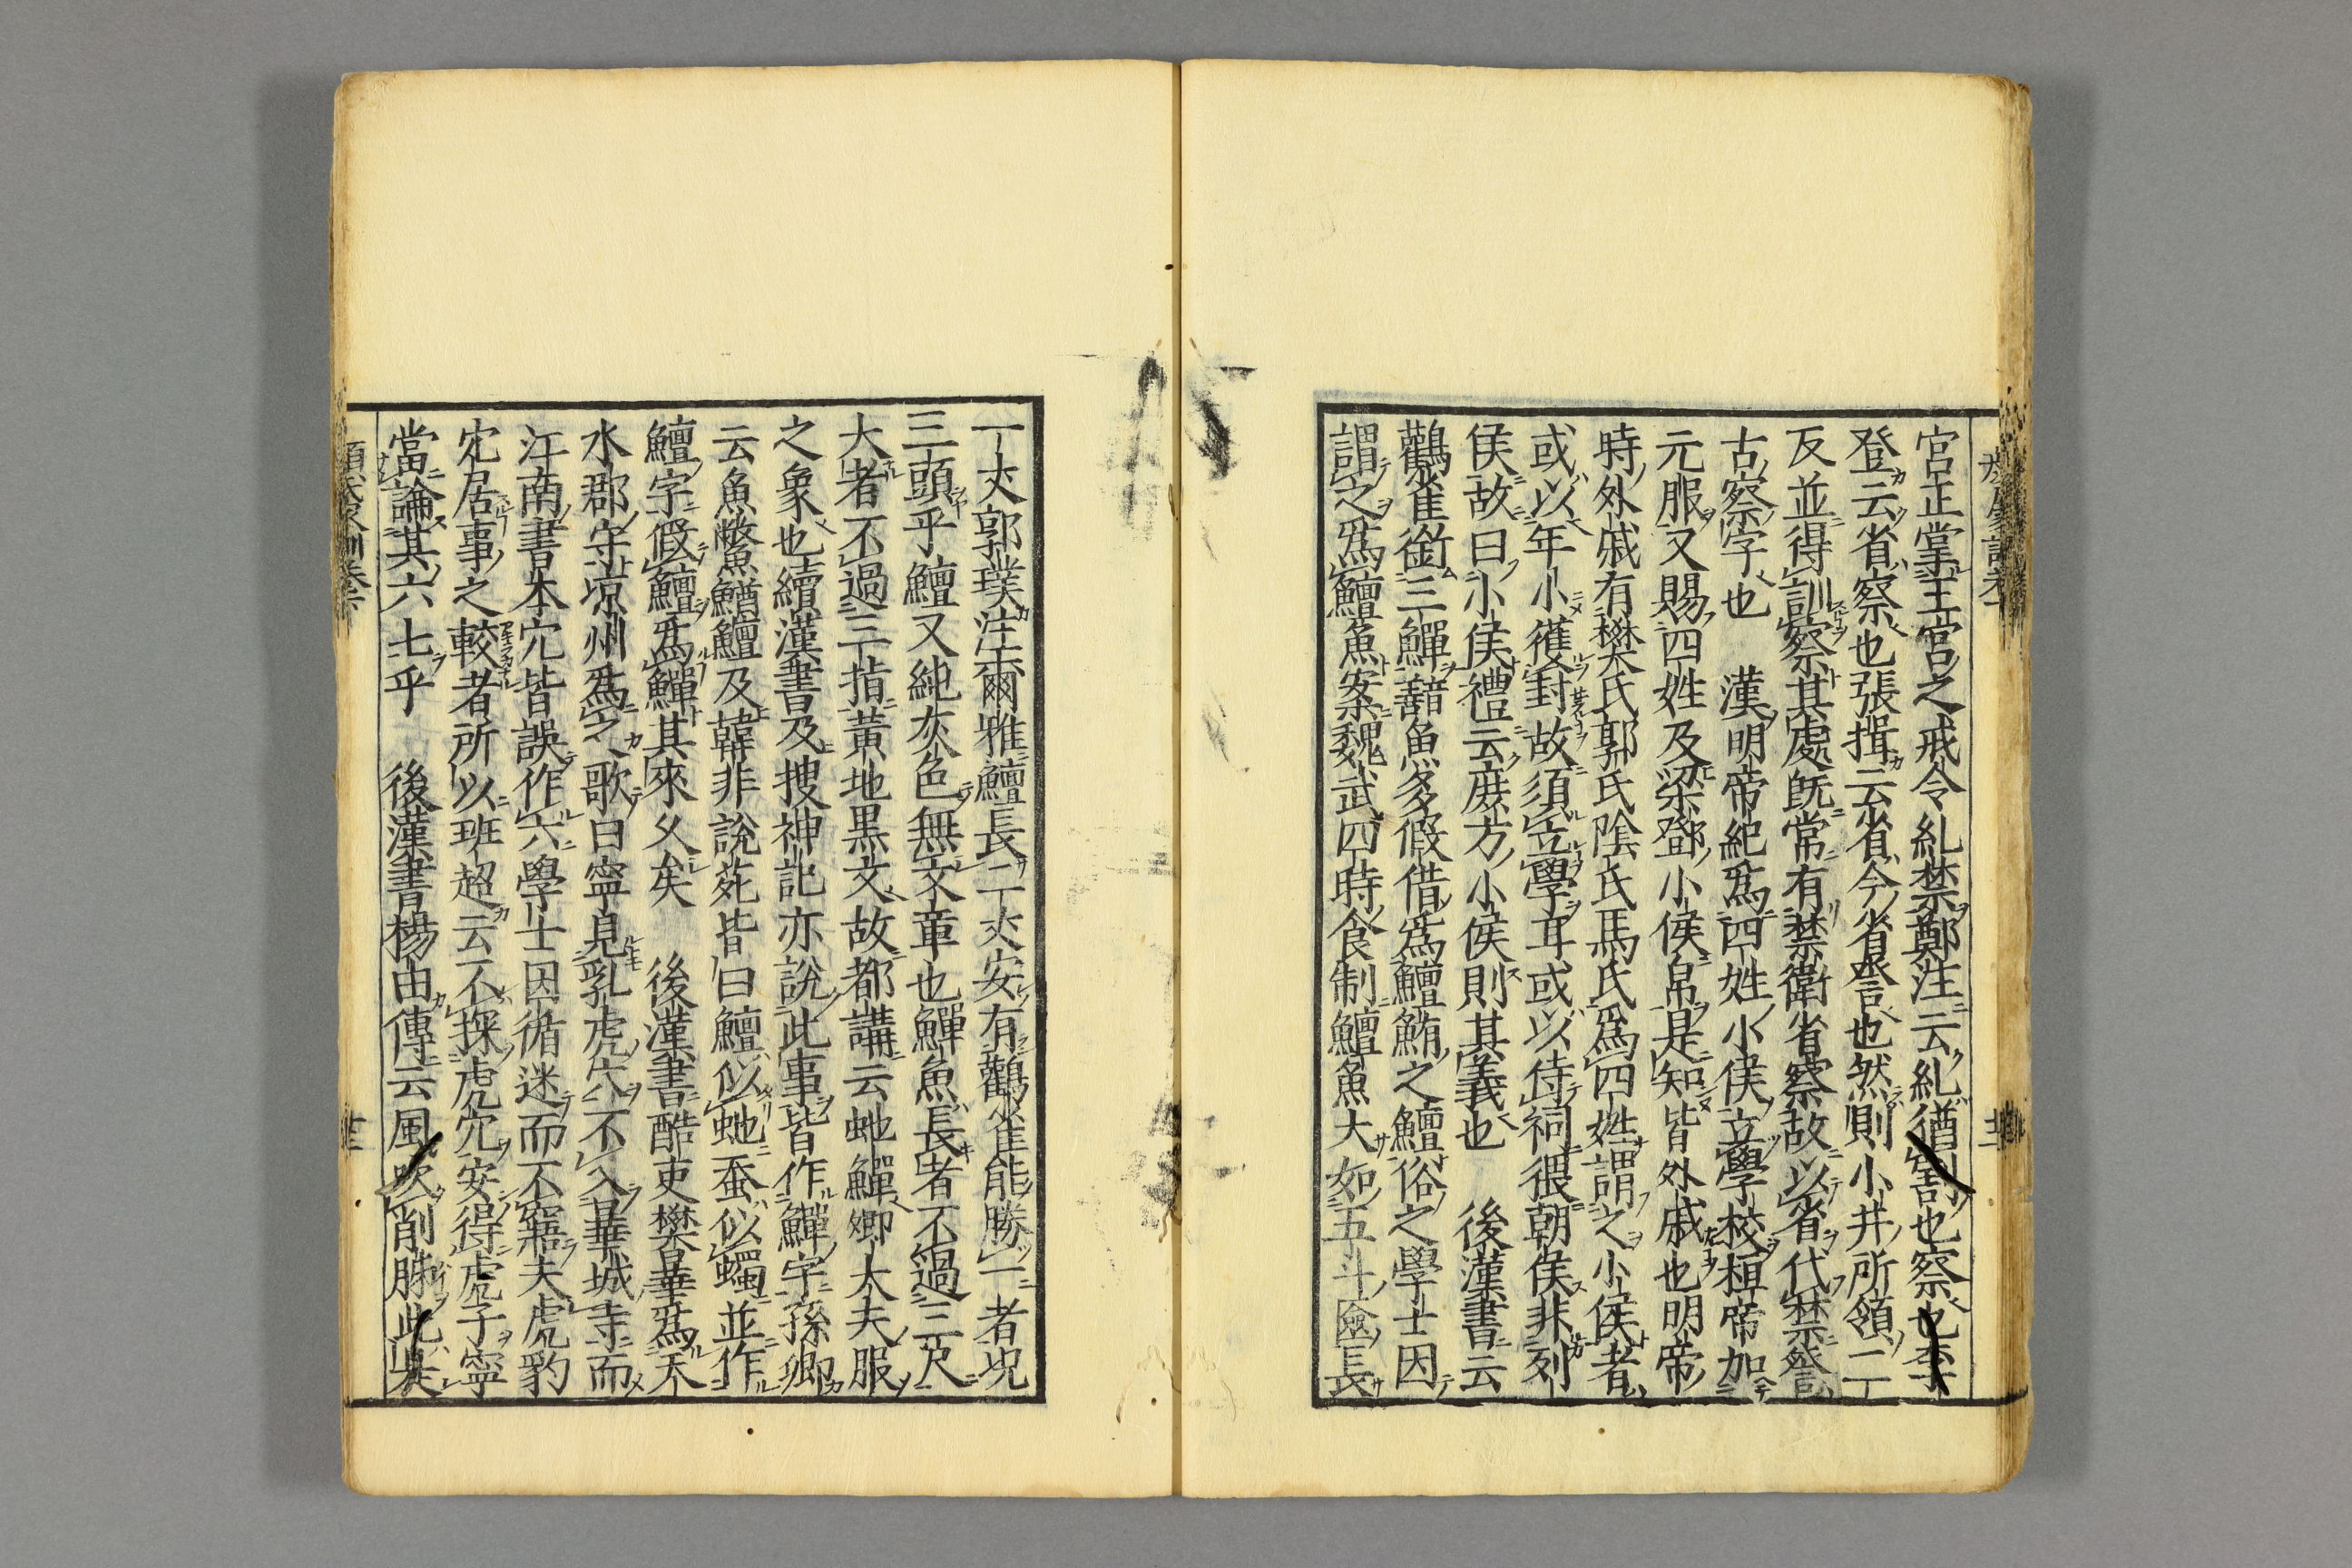 宮正掌王宮之戒令糺禁鄭注云糺猶割也察也李
登云省察也張揖云省今省詧也然則小井所領二
反並得訓察其處既常有禁衛省察故以省代禁詧
古察字也 漢明帝紀爲四姓小侯立學校桓帝加
元服又賜四姓及梁鄧小侯帛是知皆外戚也明帝
時外戚有樊氏郭氏陰氏馬氏爲四姓謂之小侯者
或以年小獲封故須立學耳或以侍祠猥朝侯非列
侯故曰小侯禮云庶方小侯則其義也 後漢書云
鸛雀銜三鱓䱉魚多假借爲鱣鮪之鱣俗之學士因
謂之爲鱣魚案魏武四時食制鱣魚大如五斗匳長
一丈郭璞注爾雅鱣長二丈安有鸛雀能勝一者况
三頭乎鱣又純灰色無文章也鱓魚長者不過三尺
大者不過三指黄地黒文故都講云虵鱓卿大夫服
之象也續漢書及搜神記亦說此事皆作鱓字孫卿
云魚鱉鰌鱣及韓非說苑皆曰鱣似虵蚕似蠋並作
鱣字假鱣爲鱓其來久矣 後漢書酷吏樊曄爲天
水郡守凉州爲之歌曰寧見乳虎穴不入曄城寺而
江南書本穴皆誤作六學士因循迷而不寤夫虎豹
穴居事之較者所以班超云不探虎穴安得虎子寧
當論其六七乎 後漢書楊由傳云風吹削胏此是
顔氏家訓卷下